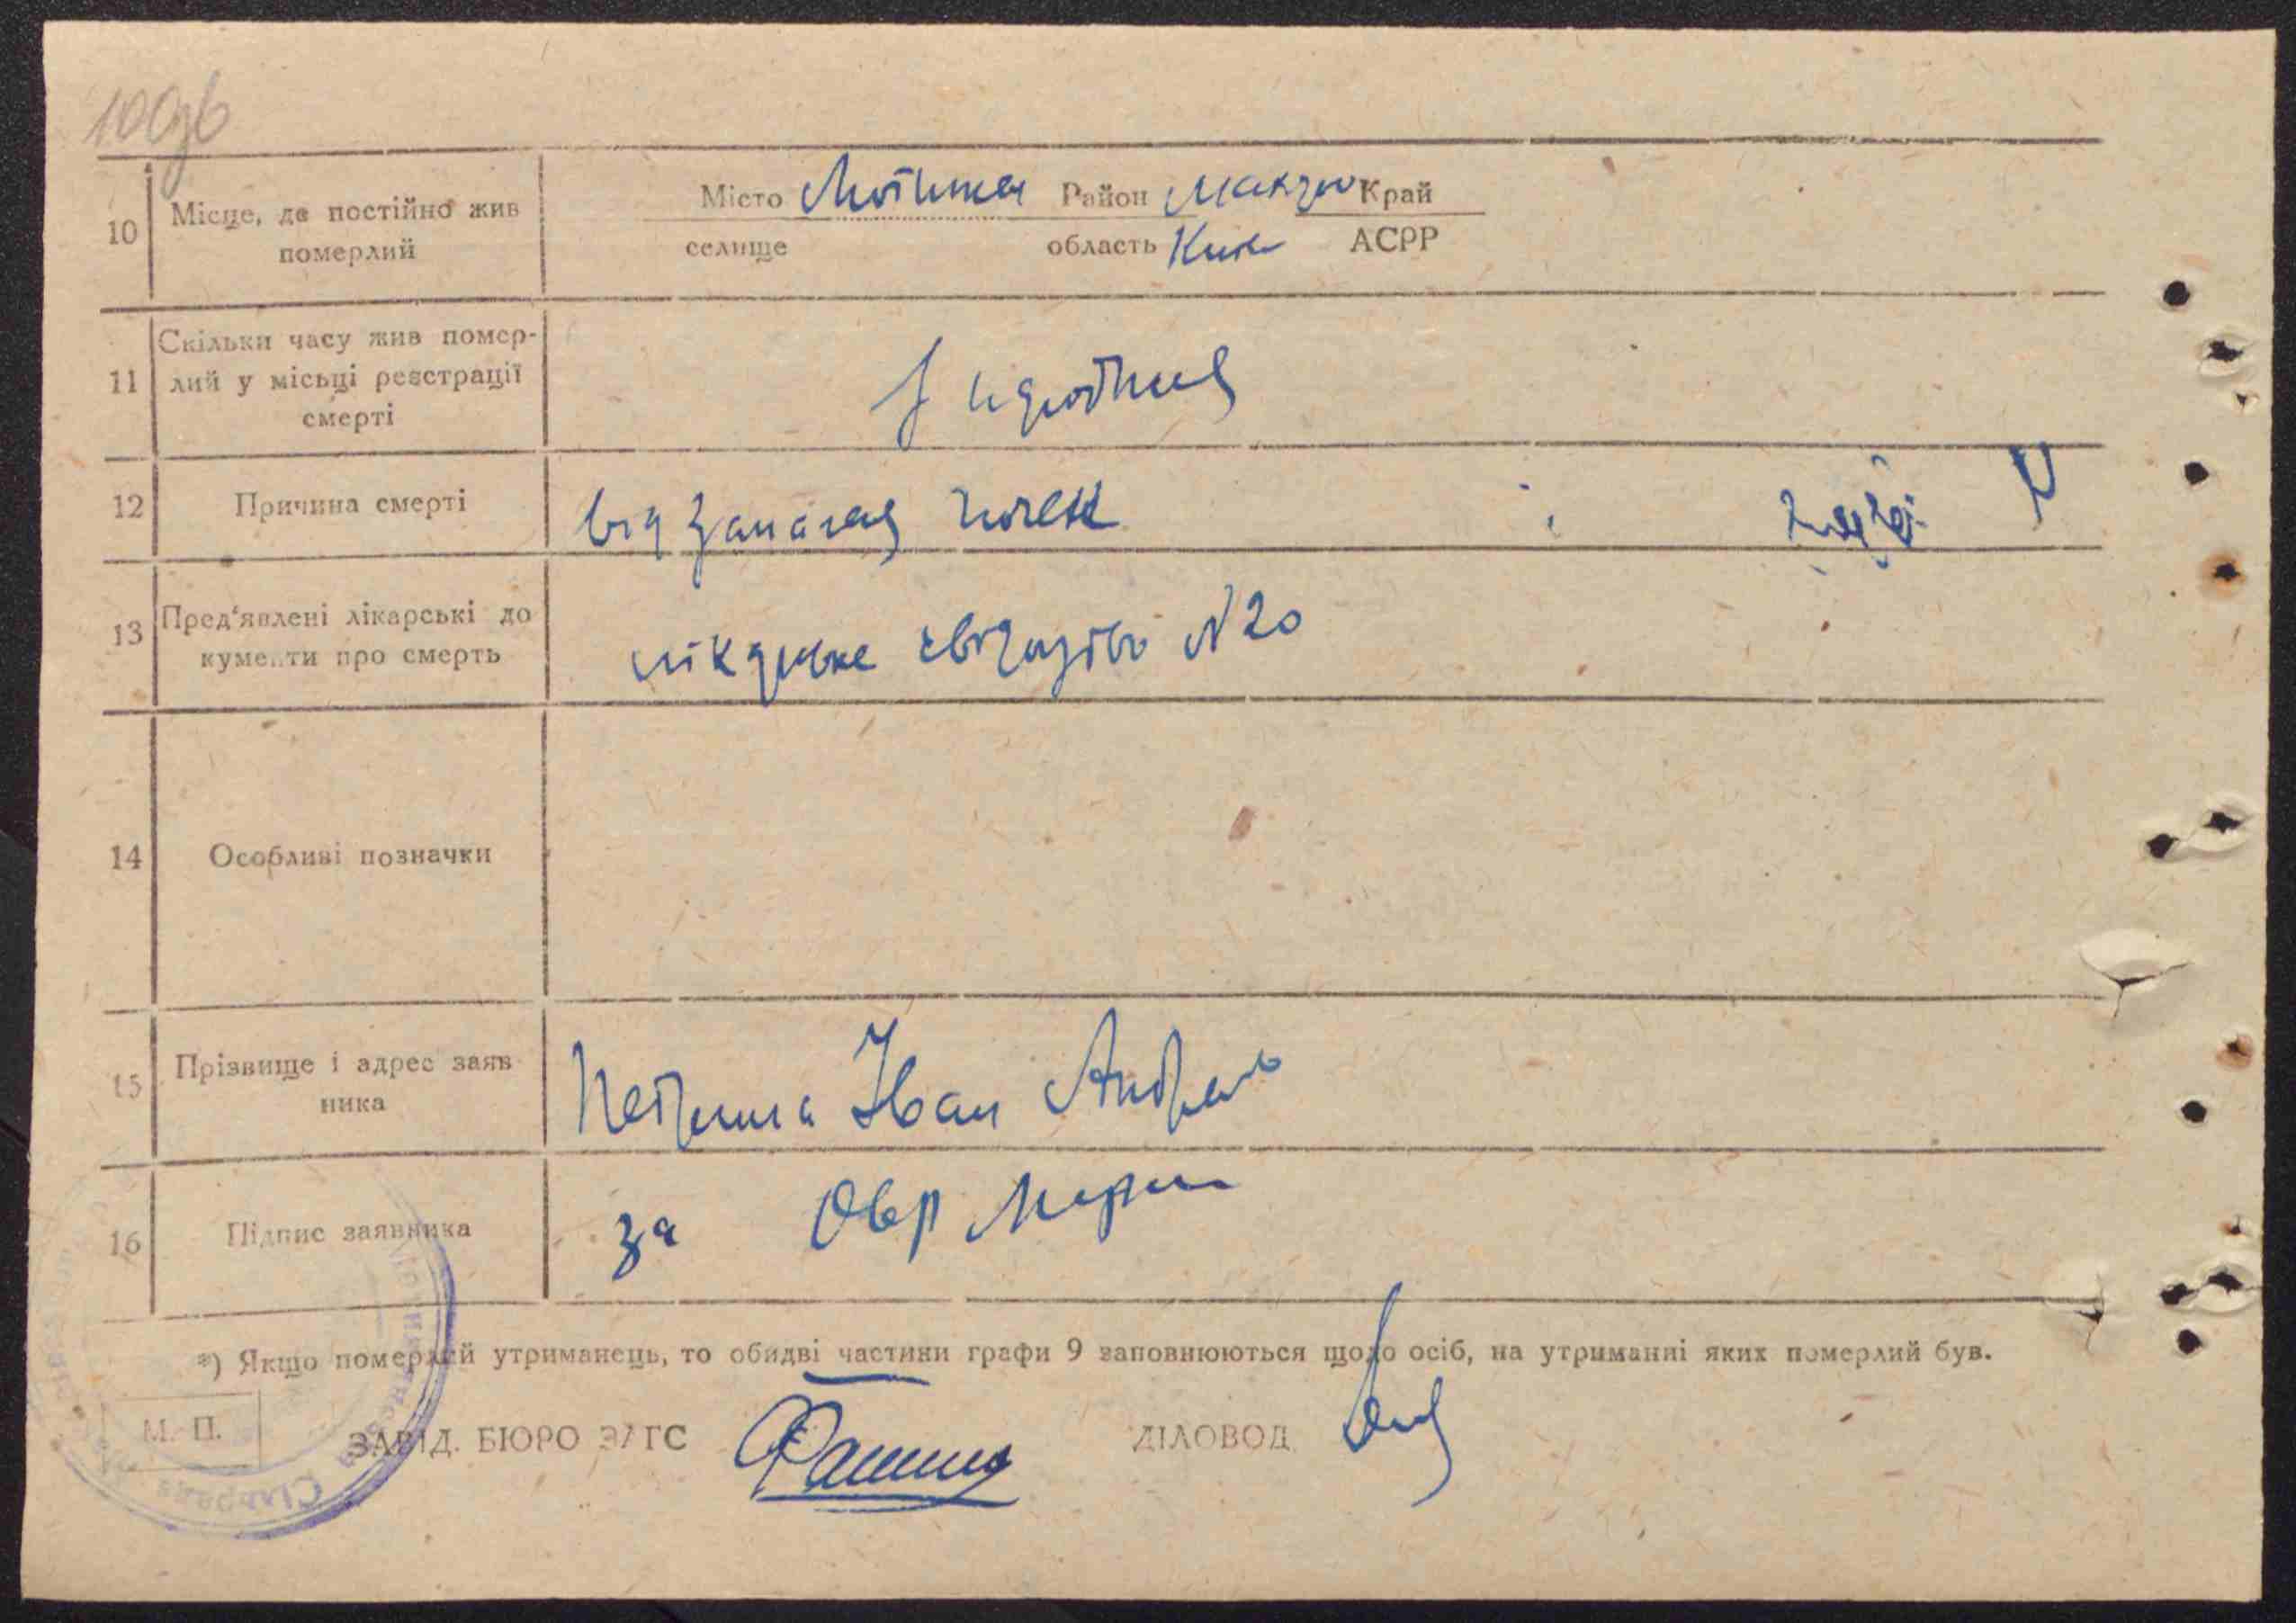 100зв
10 Місце, де постійно жив померлий
Місто Мотижин Район Макарів Край
селище область Київ АСРР
11 Скільки часу жив помер-
лий у місьці реєстрації
смерті
з народження
12 Причина смерті
від запалення почек
13 Пред‘явлені лікарські до
кументи про смерть
лікарське свідоцтво №20
14 Особливі позначки
15 Прізвище і адрес заяв
ника
Іван
16 Підпис заявника
за
*) Якщо померлий утриманець, то обидві частини графи 9 заповнюються щодо осіб, на утриманні яких померлий був.
М. П.
ЗАВІД. БЮРО ЗАГС ДІЛОВОД
Сільрада